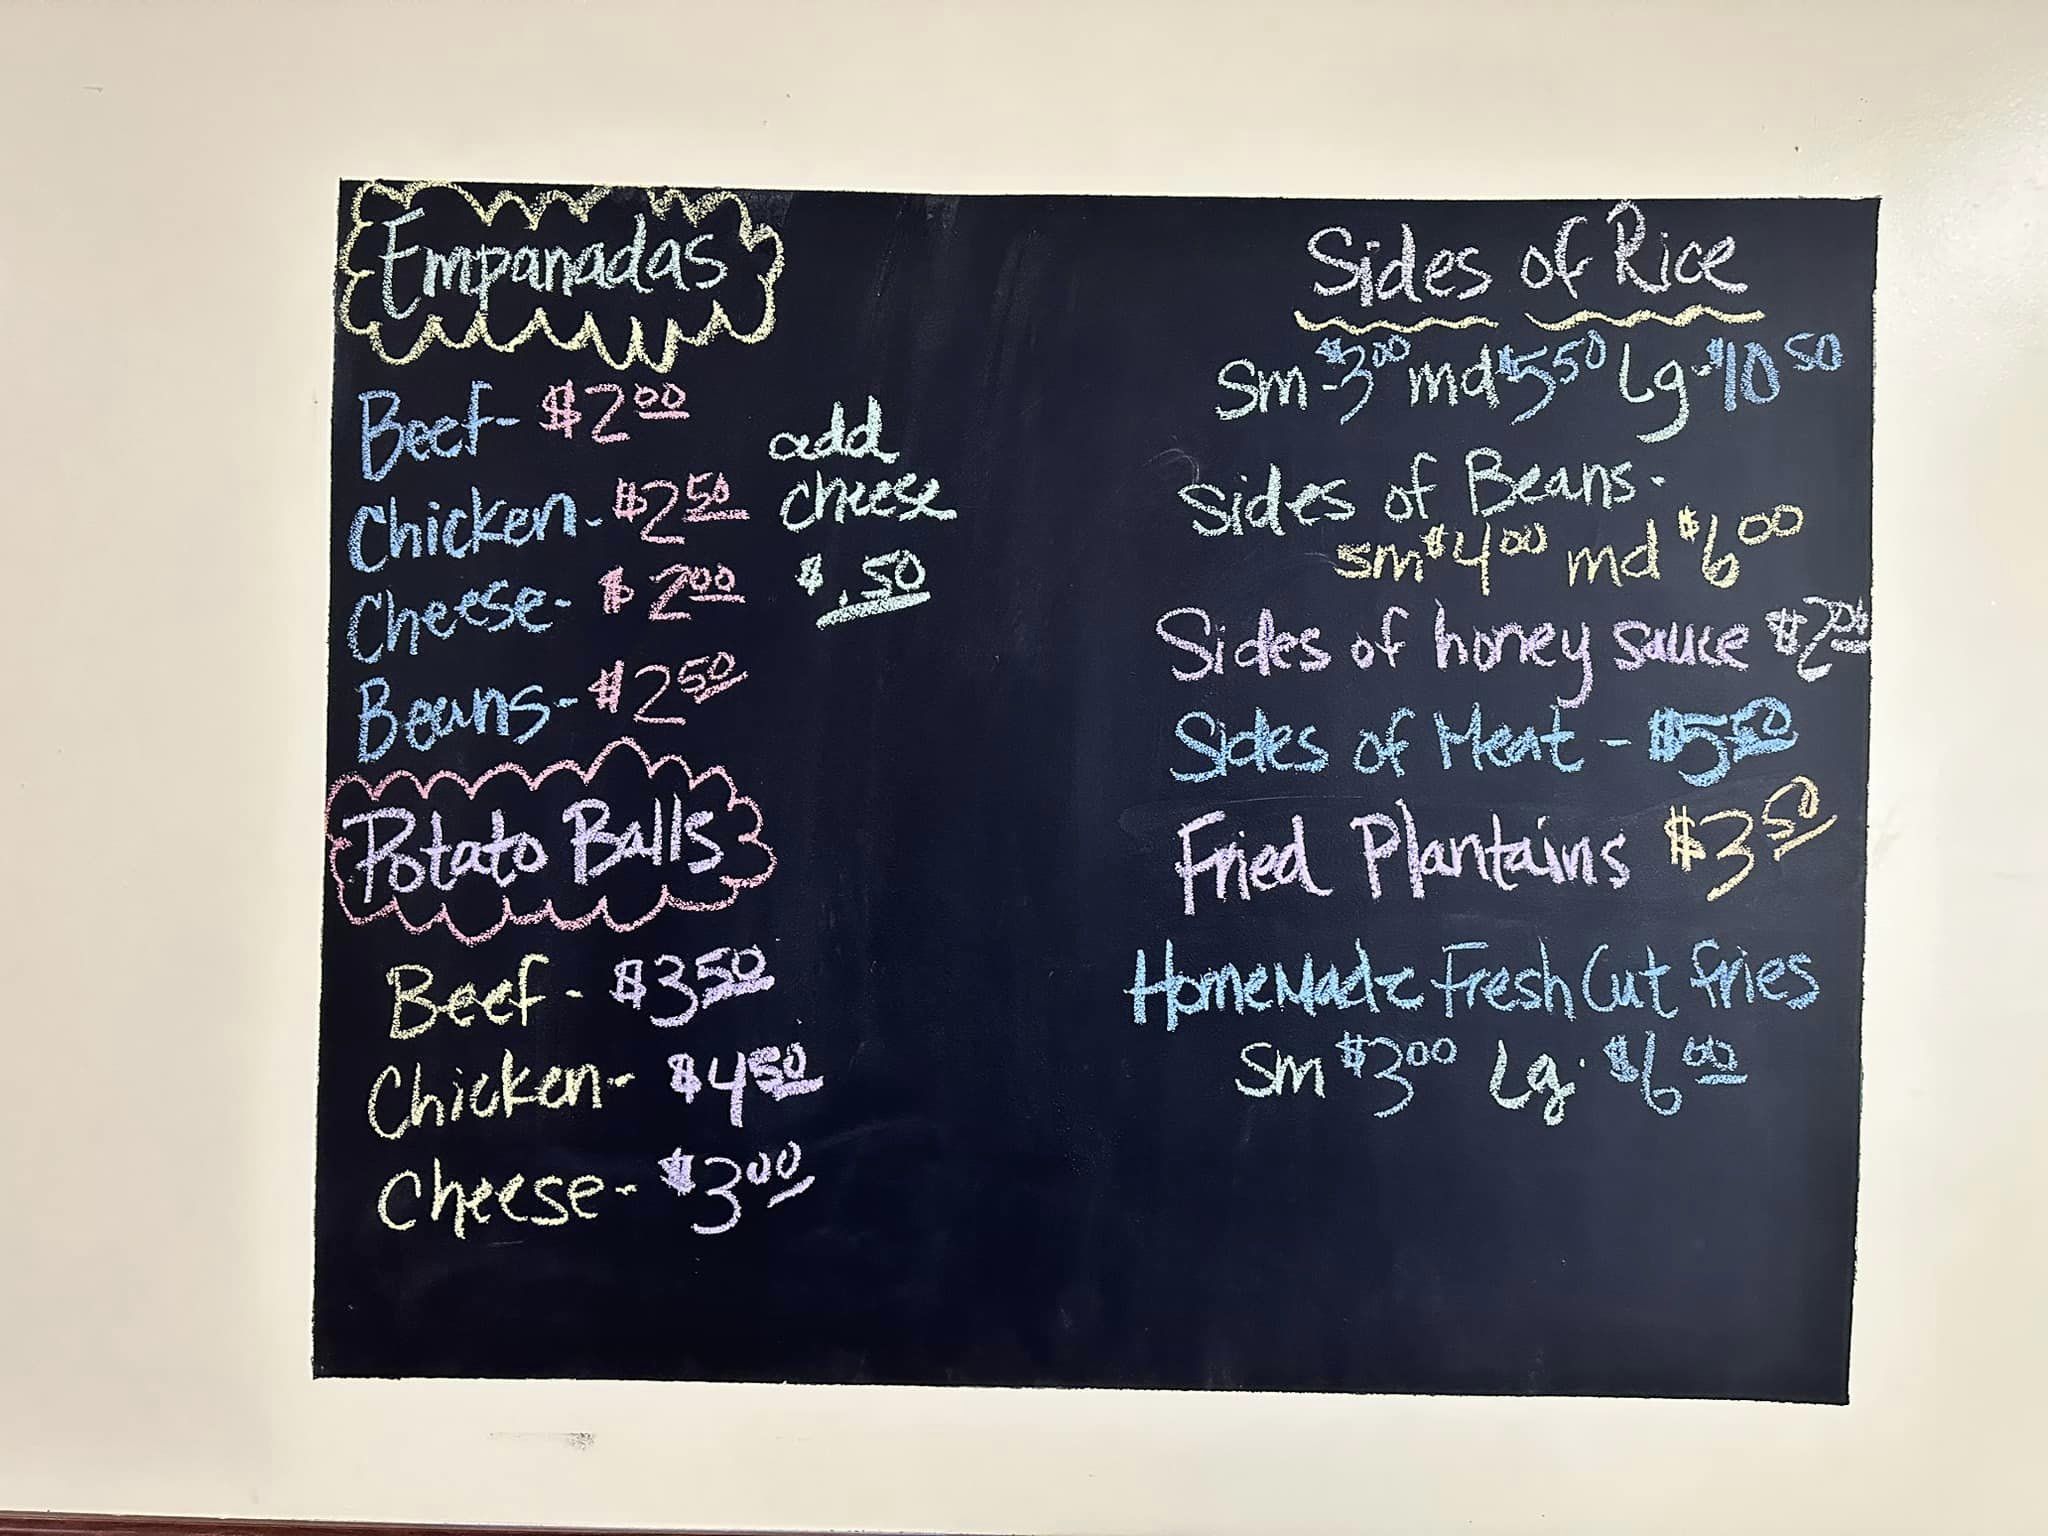 Empanadas
Beef- $2.00
Chicken- $2.50
Cheese- $2.00
Beans- $2.50
add
cheese
$.50
Potato Balls
Beef- $3.50
Chicken- $4.50
Cheese- $3.00
Sides of Rice
Sm-$3.00 md$5.50 Lg-$10.50
Sides of Beans-
sm$4.00 md $6.00
Sides of honey sauce $2.00
Sides of Meat - $5.50
Fried Plantains $3.50
HomeMade Fresh Cut fries
Sm $3.00 Lg- $6.00